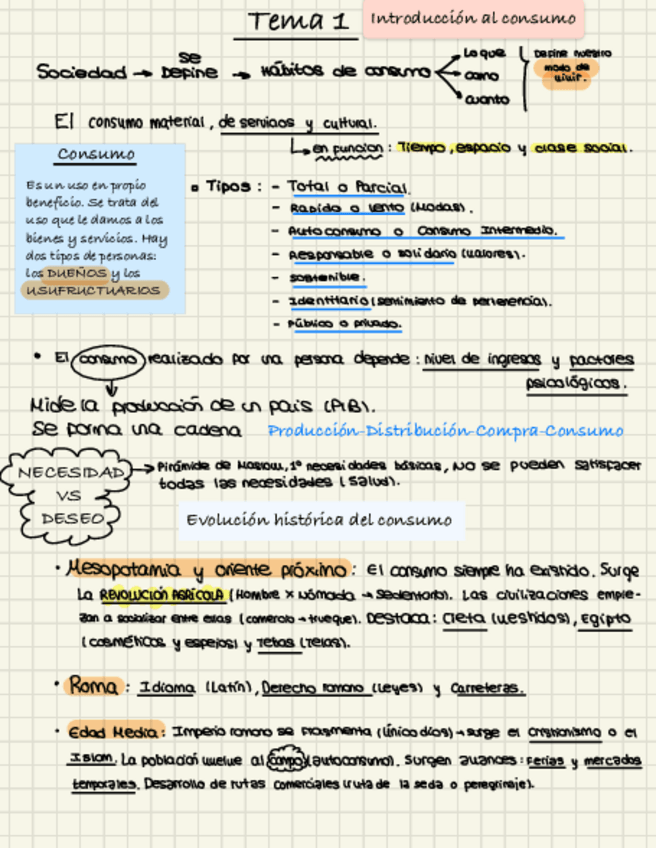 Tema 1 Introducción al consumo
Sociedad → se Define → Hábitos de consumo
Lo que
como
cuanto
Define nuestro
modo de
vivir.
El consumo material, de servicios y cultural.
en funcion: Tiempo, espacio y clase social.
Consumo
Es un uso en propio
beneficio. Se trata del
uso que le damos a los
bienes y servicios. Hay
dos tipos de personas:
los DUEÑOS y los
USUFRUCTUARIOS
Tipos: - Total o Parcial.
- Rapido o lento (Modas).
- Autoconsumo o Consumo Intermedio.
- Responsable o solidario (valores).
- sostenible.
- Identitario (sentimiento de pertenencia).
- Público o privado.
• El consumo realizado por una persona depende: nivel de ingresos y factores
psicológicos.
Mide la producción de un país (PIB).
Se forma una cadena Producción-Distribución-Compra-Consumo
NECESIDAD
VS
DESEO
→ Pirámide de Maslow, 1º necesidades básicas, NO se pueden satisfacer
todas las necesidades (salud).
Evolución histórica del consumo
• Mesopotamia y oriente próximo: El consumo siempre ha existido. Surge
La REVOLUCIÓN AGRÍCOLA (Hombre x Nómada → Sedentario). Las civilizaciones empie-
zan a socializar entre ellas (comercio → trueque). Destaca: Creta (vestidos), Egipto
(cosméticos y espejos) y Tebas (Telas).
• Roma: Idioma (Latín), Derecho romano (Leyes) y Carreteras.
• Edad Media: Imperio romano se fragmenta (único dios) → surge el cristianismo o el
Islam. La población vuelve al campo (autoconsumo). Surgen avances: Ferias y mercados
temporales. Desarrollo de rutas comerciales (ruta de la seda o peregrinaje).